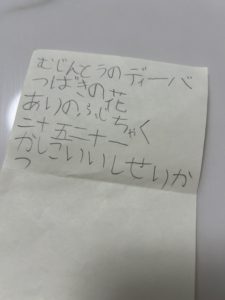 むじんとうのディーバ
つばきの花
ありのふじちゃく
二十五二十一
かしこいいしせいか
つ